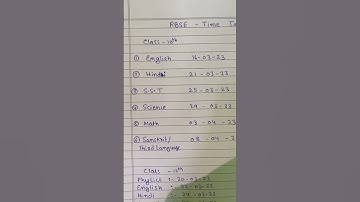 RBSE - Time Ta
Class - 10th
① English 16-03-23
② Hindi 21-03-23
③ S.S.T 25-03-23
④ Science 29-03-23
⑤ Math 03-04-23
⑥ Sanskrit/ 08-04-2
Third Language
Class -
Physics :- 20-03-23
English :-
Hindi :-